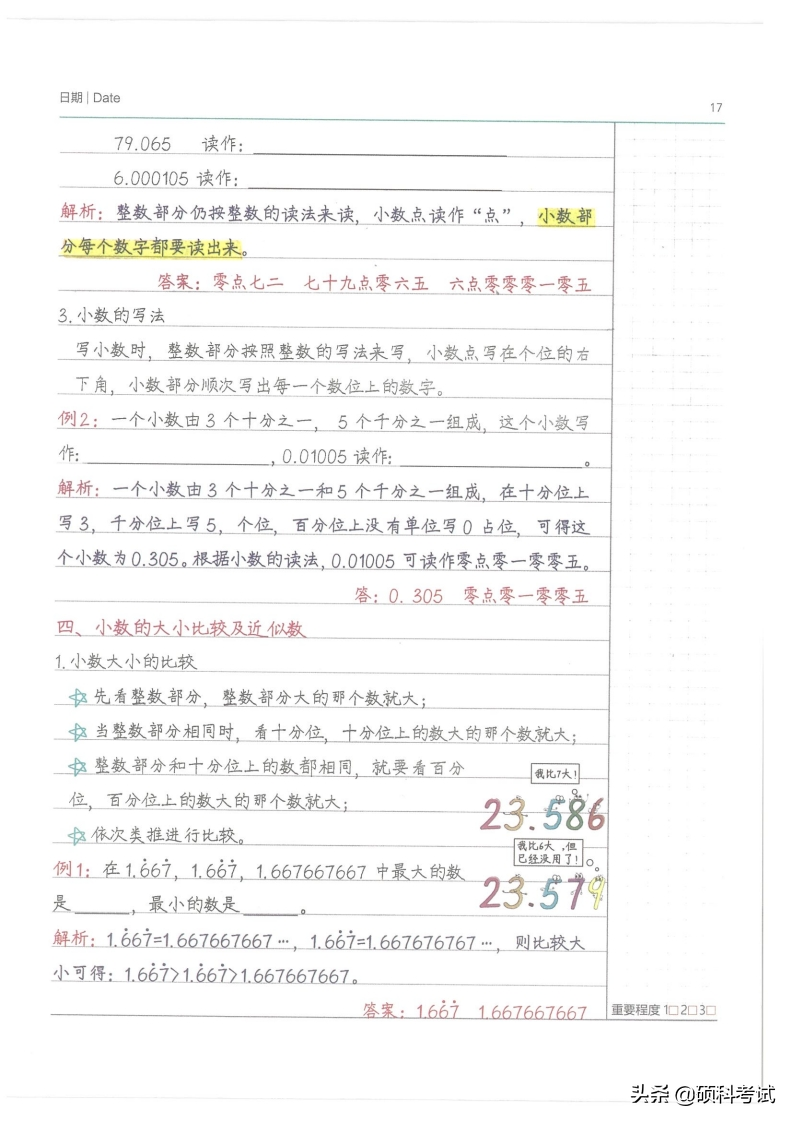 日期 | Date
17
79.065 读作:
6.000105 读作:
解析: 整数部分仍按整数的读法来读, 小数点读作“点”, 小数部
分每个数字都要读出来。
答案: 零点七二 七十九点零六五 六点零零零一零五
3.小数的写法
写小数时, 整数部分按照整数的写法来写, 小数点写在个位的右
下角, 小数部分顺次写出每一个数位上的数字。
例2: 一个小数由3个十分之一, 5个千分之一组成, 这个小数写
作:________, 0.01005 读作:________。
解析: 一个小数由3个十分之一和5个千分之一组成, 在十分位上
写3, 千分位上写5, 个位, 百分位上没有单位写0占位, 可得这
个小数为0.305。根据小数的读法, 0.01005 可读作零点零一零零五。
答: 0. 305 零点零一零零五
四、小数的大小比较及近似数
1.小数大小的比较
☆先看整数部分, 整数部分大的那个数就大;
☆当整数部分相同时, 看十分位, 十分位上的数大的那个数就大;
☆整数部分和十分位上的数都相同, 就要看百分
位, 百分位上的数大的那个数就大;
☆依次类推进行比较。
我比7大!
23.586
我比6大 ,但
已经没用了!
23.579
例1: 在1.6̇67̇, 1.66̇7̇, 1.667667667 中最大的数
是____, 最小的数是____。
解析: 1.6̇67̇=1.667667667…, 1.66̇7̇=1.667676767…, 则比较大
小可得: 1.66̇7̇>1.6̇67̇>1.667667667。
答案: 1.66̇7̇ 1.667667667
重要程度 1□2□3□
头条 @硕科考试